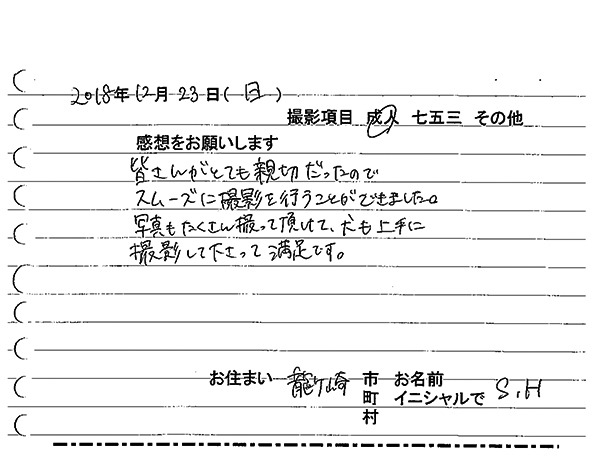 2018年12月23日(日)
撮影項目 成人 七五三 その他
感想をお願いします
皆さんがとても親切だったので
スムーズに撮影を行うことができました。
写真もたくさん撮って頂けて、犬も上手に
撮影して下さって満足です。
お住まい 龍ヶ崎 市 お名前
町 イニシャルで S.H
村